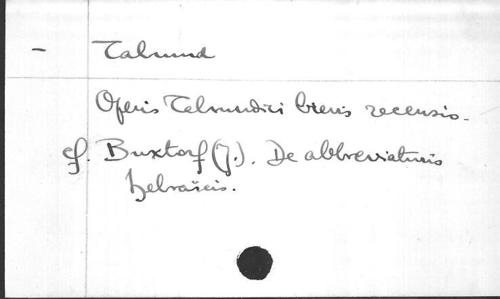 - Talmud
Operis Talmudici brevis recensio.
cf. Buxtorf (J.). De abbreviaturis
hebraicis.